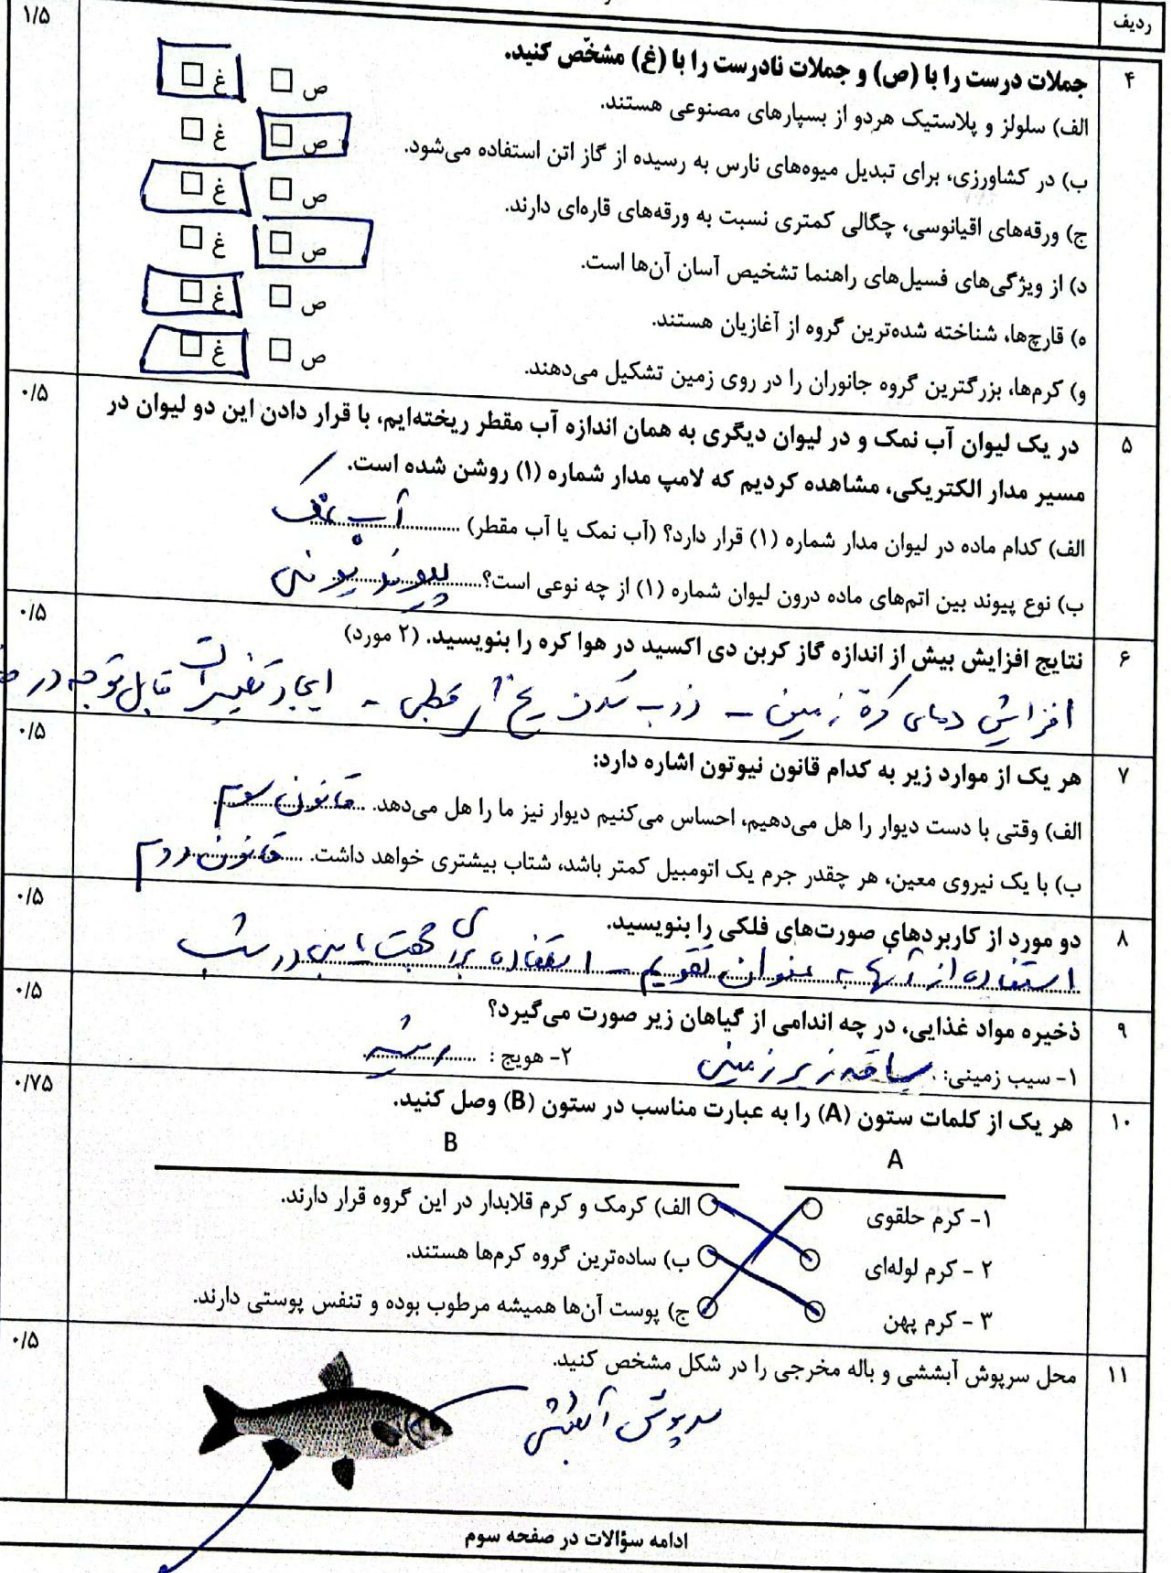 ردیف
۱/۵
۴
جملات درست را با (ص) و جملات نادرست را با (غ) مشخّص کنید.
الف) سلولز و پلاستیک هردو از بسپارهای مصنوعی هستند. ص □ غ □
ب) در کشاورزی، برای تبدیل میوه‌های نارس به رسیده از گاز اتن استفاده می‌شود. ص □ غ □
ج) ورقه‌های اقیانوسی، چگالی کمتری نسبت به ورقه‌های قاره‌ای دارند. ص □ غ □
د) از ویژگی‌های فسیل‌های راهنما تشخیص آسان آن‌ها است. ص □ غ □
ه) قارچ‌ها، شناخته شده‌ترین گروه از آغازیان هستند. ص □ غ □
و) کرم‌ها، بزرگترین گروه جانوران را در روی زمین تشکیل می‌دهند. ص □ غ □
۰/۵
۵
در یک لیوان آب نمک و در لیوان دیگری به همان اندازه آب مقطر ریخته‌ایم، با قرار دادن این دو لیوان در
مسیر مدار الکتریکی، مشاهده کردیم که لامپ مدار شماره (۱) روشن شده است.
الف) کدام ماده در لیوان مدار شماره (۱) قرار دارد؟ (آب نمک یا آب مقطر) آب نمک
ب) نوع پیوند بین اتم‌های ماده درون لیوان شماره (۱) از چه نوعی است؟ پیوند یونی
۰/۵
۶
نتایج افزایش بیش از اندازه گاز کربن دی اکسید در هوا کره را بنویسید. (۲ مورد)
افزایش دمای کرهٔ زمین - ذوب شدن یخ های قطبی - ایجاد تغییرات قابل توجه در
۰/۵
۷
هر یک از موارد زیر به کدام قانون نیوتون اشاره دارد:
الف) وقتی با دست دیوار را هل می‌دهیم، احساس می‌کنیم دیوار نیز ما را هل می‌دهد. قانون سوم
ب) با یک نیروی معین، هر چقدر جرم یک اتومبیل کمتر باشد، شتاب بیشتری خواهد داشت. قانون دوم
۰/۵
۸
دو مورد از کاربردهای صورت‌های فلکی را بنویسید.
استفاده از آنها به عنوان تقویم - استفاده برای جهت یابی در شب
۰/۵
۹
ذخیره مواد غذایی، در چه اندامی از گیاهان زیر صورت می‌گیرد؟
۱- سیب زمینی: ساقه زیر زمینی ۲- هویج : ریشه
۰/۷۵
۱۰
هر یک از کلمات ستون (A) را به عبارت مناسب در ستون (B) وصل کنید.
A B
۱- کرم حلقوی الف) کرمک و کرم قلابدار در این گروه قرار دارند.
۲ - کرم لوله‌ای ب) ساده‌ترین گروه کرم‌ها هستند.
۳ - کرم پهن ج) پوست آن‌ها همیشه مرطوب بوده و تنفس پوستی دارند.
۰/۵
۱۱
محل سرپوش آبششی و باله مخرجی را در شکل مشخص کنید.
سرپوش آبششی
ادامه سؤالات در صفحه سوم